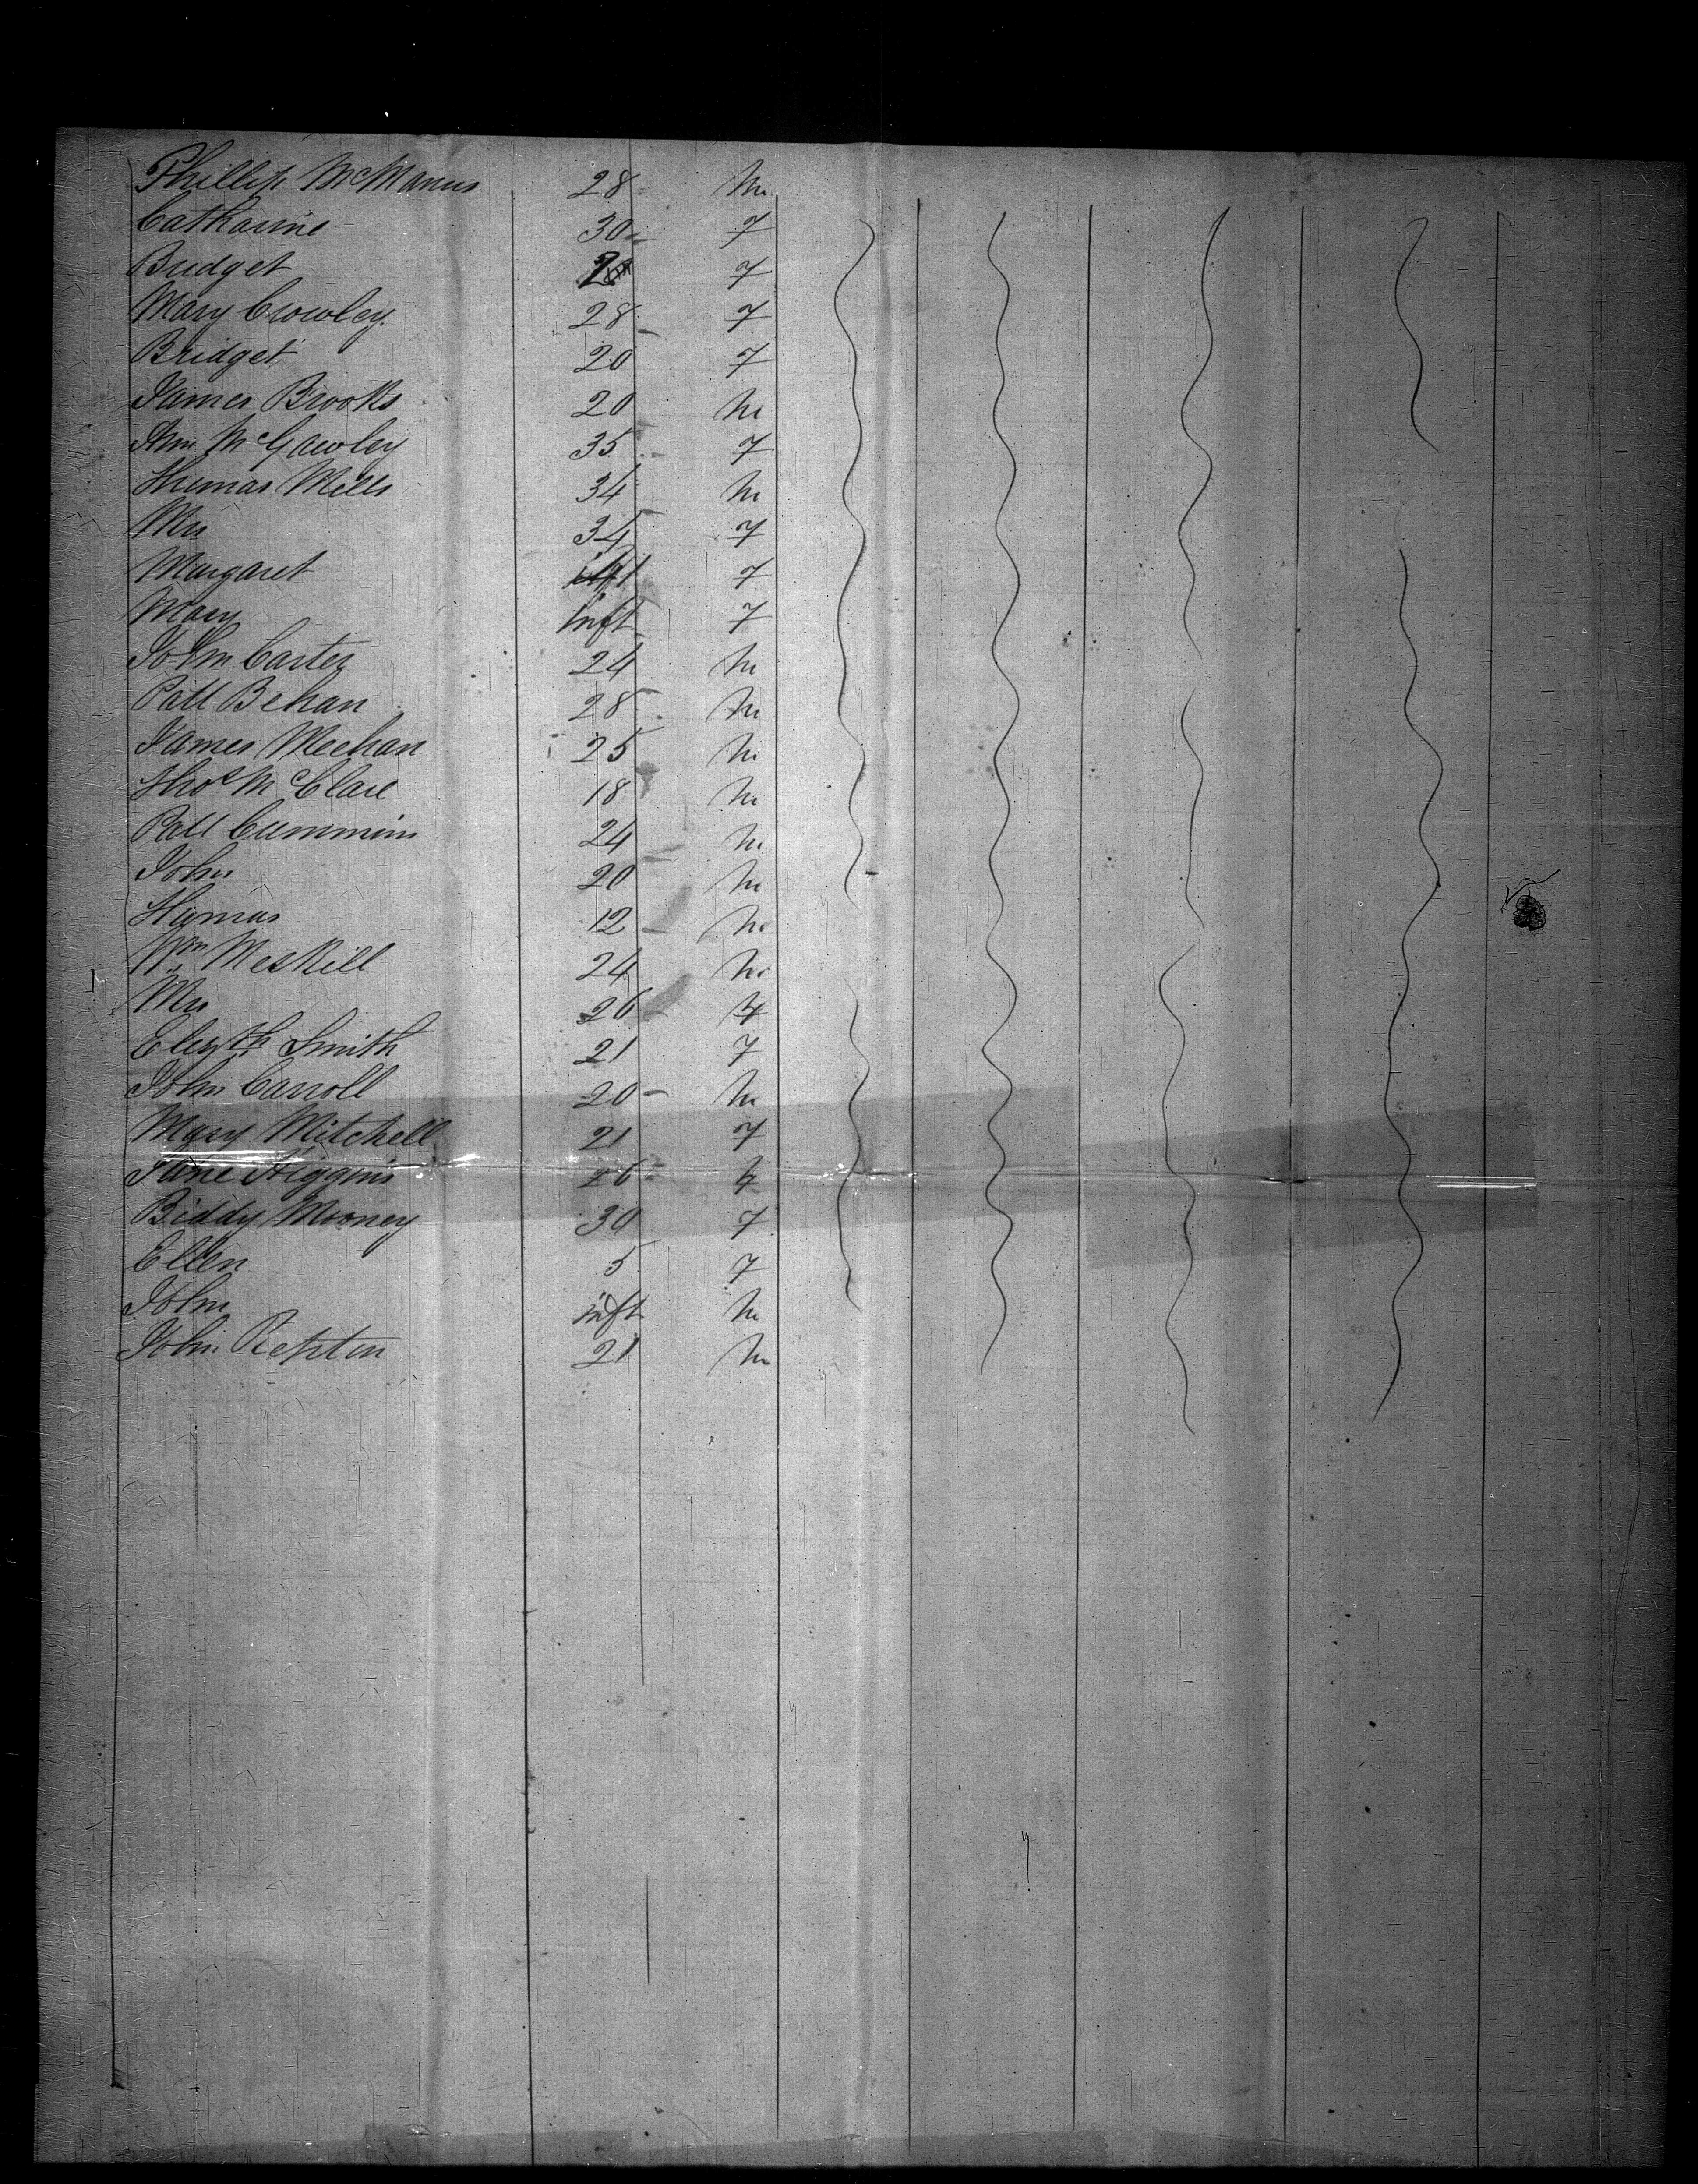 Phillip McManus 28 M
Catharine 30 F
Bridget 2 F
Mary Crowley 28 F
Bridget 20 F
James Brooks 20 M
Ann McGawley 35 F
Thomas Mells 34 M
Mrs 34 F
Margaret F
Mary inft F
John Carter 24 M
Patt Behan 28 M
James Meehan 25 M
Thos McClare 18 M
Patt Cummins 24 M
John 20 M
Thomas 12 M
Wm Meskill 24 M
Mrs 26 F
Elizth Smith 21 F
John Carroll 20 M
Mary Mitchell 21 F
Jane Higgins 26 F
Biddy Mooney 30 F
Ellen 5 F
John inft M
John 21 M